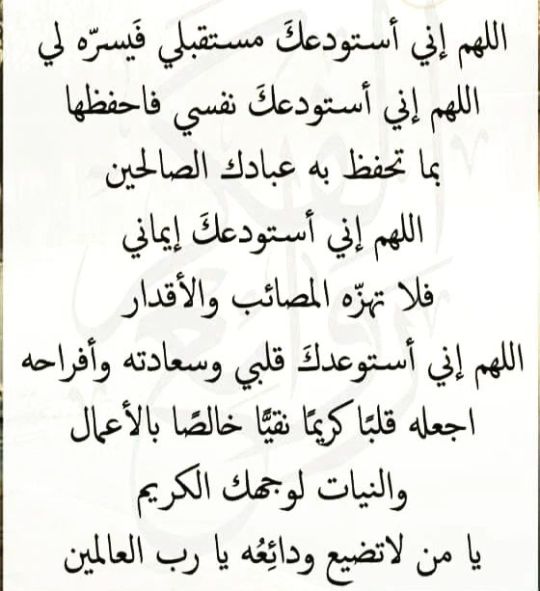 اللهم إني أستودعكَ مستقبلي فَيسرّه لي
اللهم إني أستودعكَ نفسي فاحفظها
بما تحفظ به عبادك الصالحين
اللهم إني أستودعكَ إيماني
فلا تهزّه المصائب والأقدار
اللهم إني أستوعدكَ قلبي وسعادته وأفراحه
اجعله قلبًا كريمًا نقيًّا خالصًا بالأعمال
والنيات لوجهك الكريم
يا من لاتضيع ودائِعُه يا رب العالمين